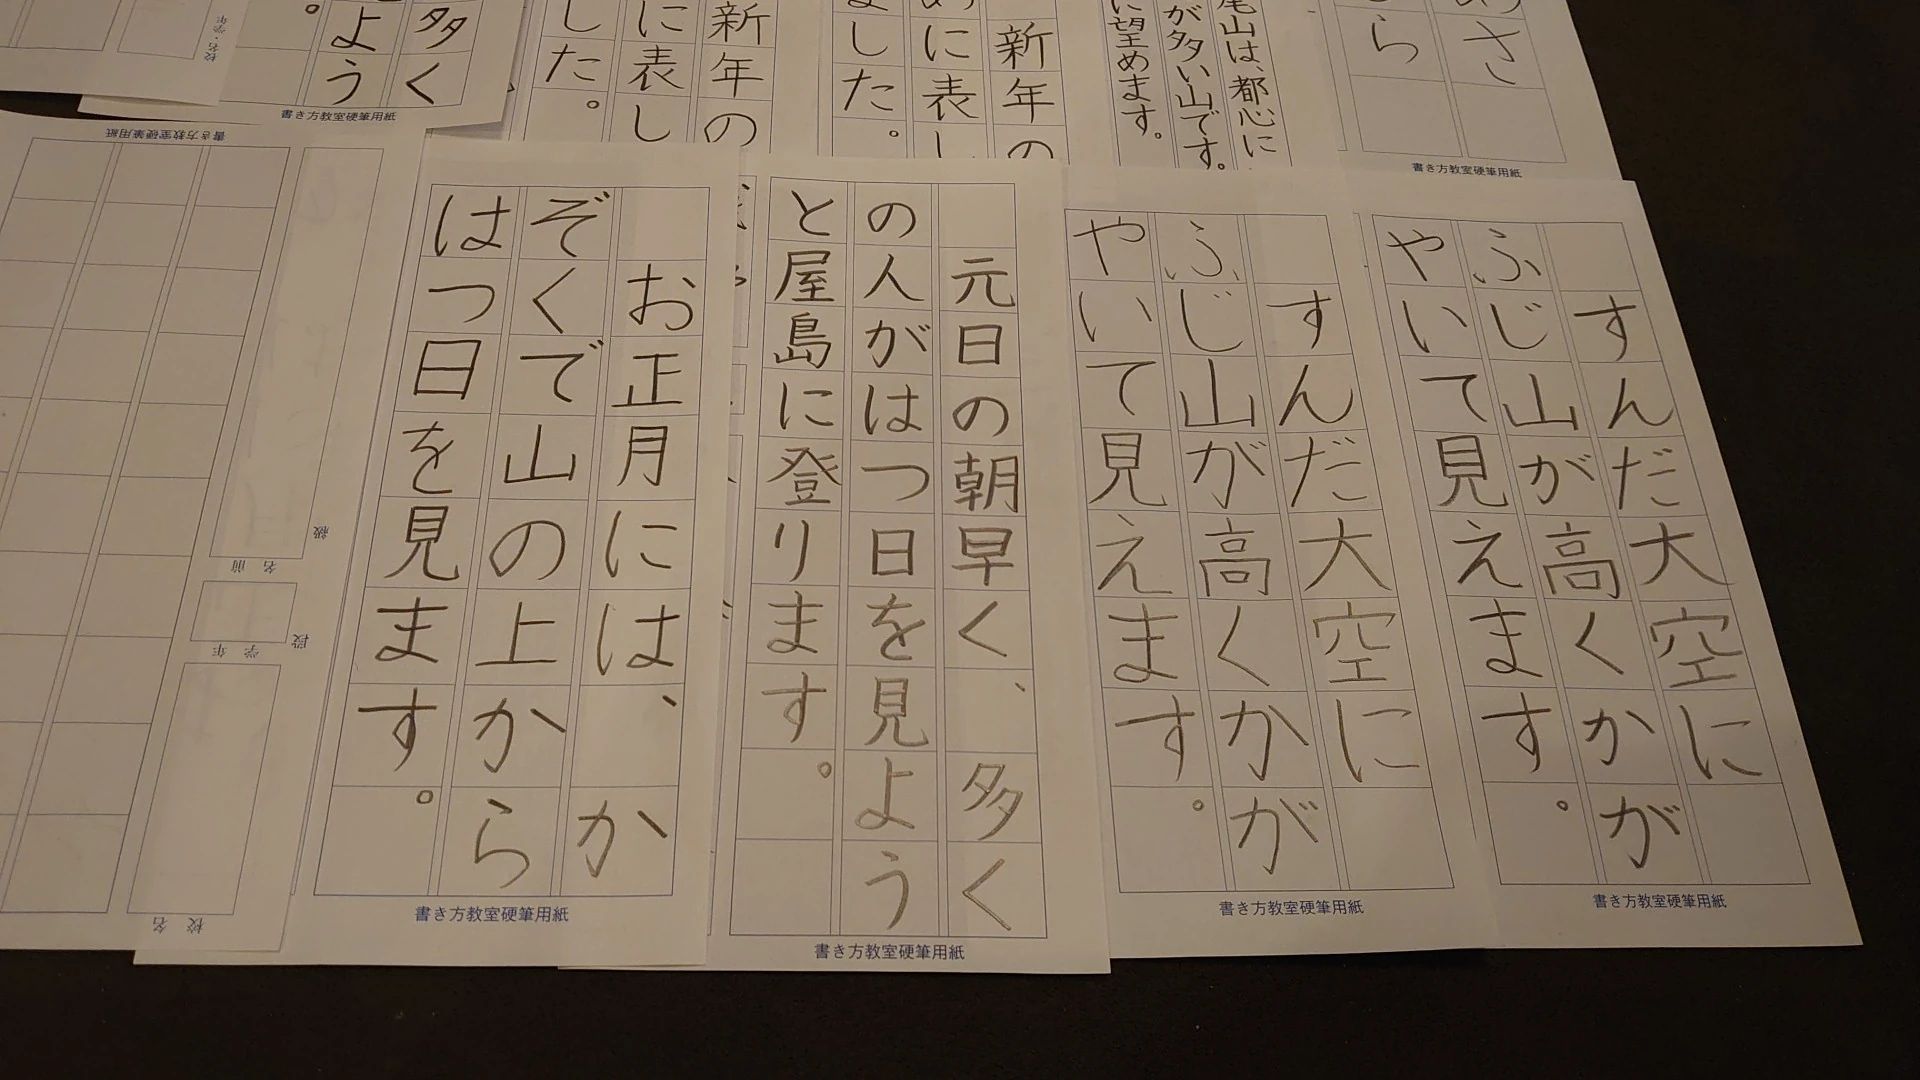 多く
よう
書き方教室硬筆用紙
新年の
に表し
した。
新年の
に表し
ました。
尾山は、都心に
が多い山です。
に望めます。
あさ
ら
書き方教室硬筆用紙
書き方教室硬筆用紙
級
名前
段
学年
校名
校名・学年
お正月には、か
ぞくで山の上から
はつ日を見ます。
書き方教室硬筆用紙
元日の朝早く、多く
の人がはつ日を見よう
と屋島に登ります。
書き方教室硬筆用紙
すんだ大空に
ふじ山が高くかが
やいて見えます。
書き方教室硬筆用紙
すんだ大空に
ふじ山が高くかが
やいて見えます。
書き方教室硬筆用紙